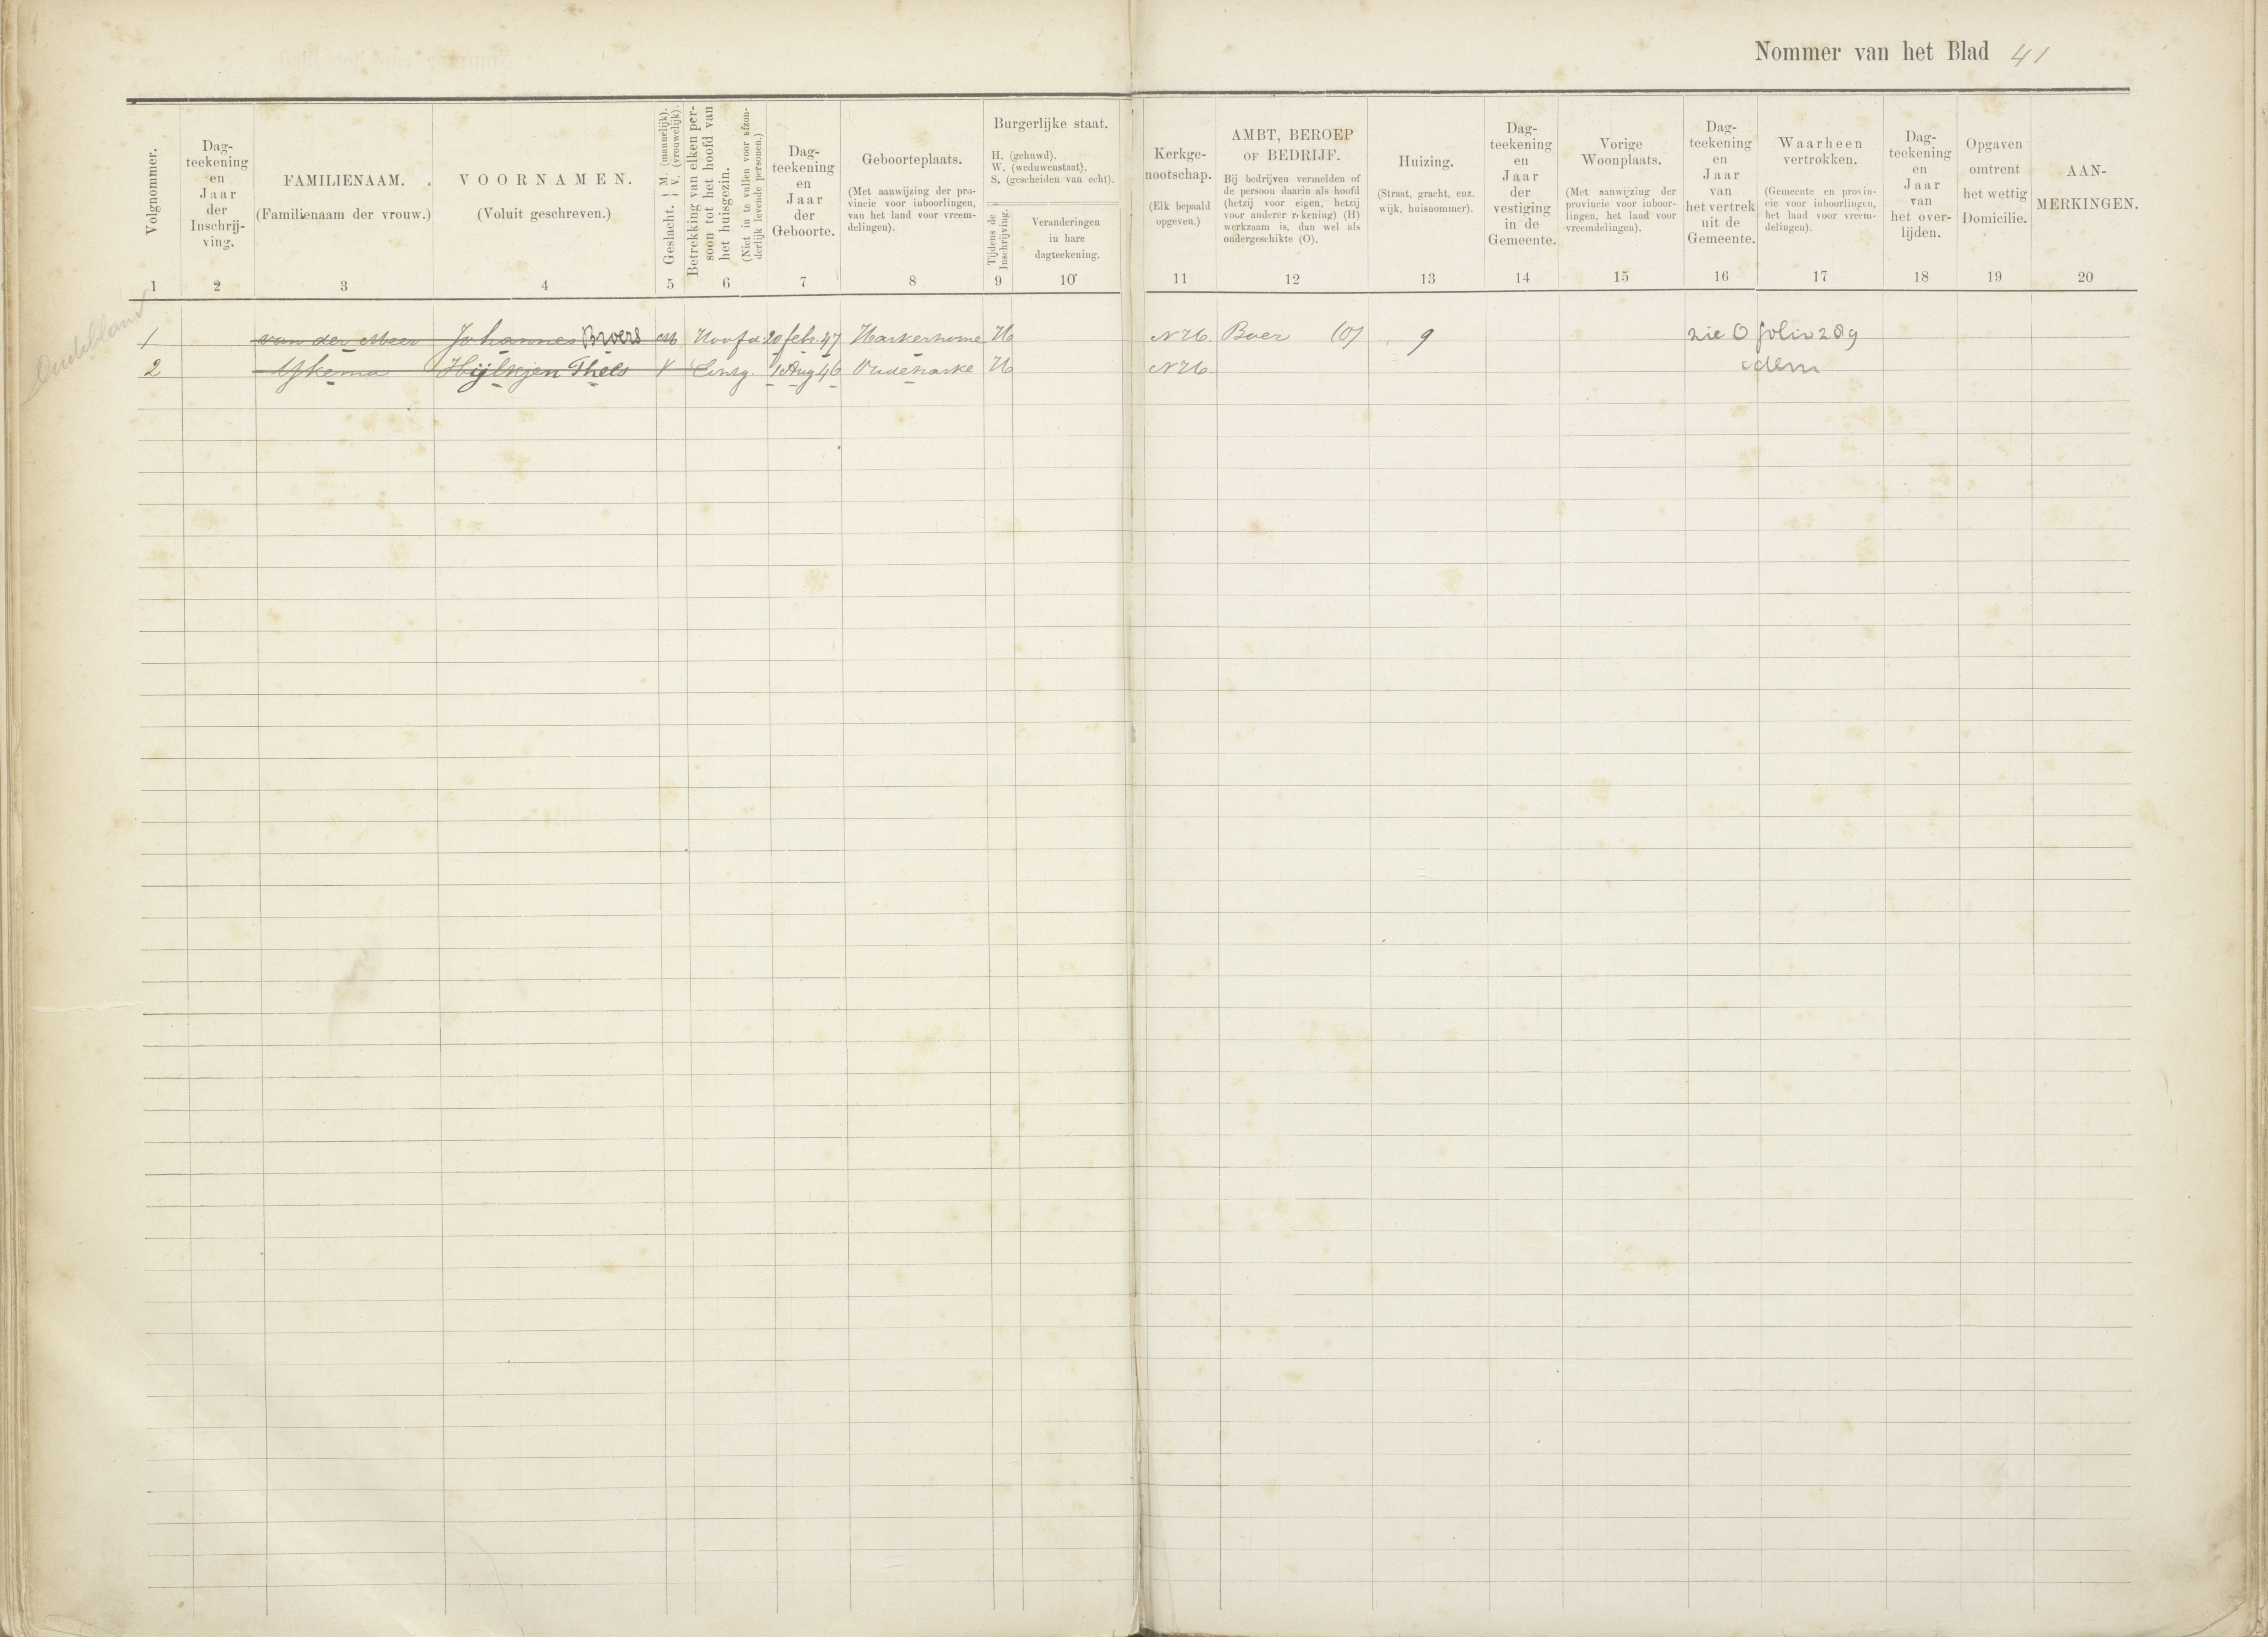 Nommer van het Blad 41
Volgnommer.
1
Dag-
teekening
en
Jaar
der
Inschrij-
ving.
2
FAMILIENAAM.
(Familienaam der vrouw.)
3
VOORNAMEN.
(Voluit geschreven.)
4
Geslacht. { M. (mannelijk). V. (vrouwelijk).
5
Betrekking van elken per-
soon tot het hoofd van
het huisgezin.
(Niet in te vullen voor afzon-
derlijk levende personen.)
6
Dag-
teekening
en
Jaar
der
Geboorte.
7
Geboorteplaats.
(Met aanwijzing der pro-
vincie voor inboorlingen,
van het land voor vreem-
delingen).
8
Burgerlijke staat.
H. (gehuwd).
W. (weduwenstaat).
S. (gescheiden van echt).
Tijdens de
Inschrijving.
9
Veranderingen
in hare
dagteekening.
10
Kerkge-
nootschap.
(Elk bepaald
opgeven.)
11
AMBT, BEROEP
OF BEDRIJF.
Bij bedrijven vermelden of
de persoon daarin als hoofd
(hetzij voor eigen, hetzij
voor anderer rekening) (H)
werkzaam is, dan wel als
ondergeschikte (O).
12
Huizing.
(Straat, gracht, enz.
wijk, huisnommer).
13
Dag-
teekening
en
Jaar
der
vestiging
in de
Gemeente.
14
Vorige
Woonplaats.
(Met aanwijzing der
provincie voor inboor-
lingen, het land voor
vreemdelingen).
15
Dag-
teekening
en
Jaar
van
het vertrek
uit de
Gemeente.
16
Waarheen
vertrokken.
(Gemeente en provin-
cie voor inboorlingen,
het land voor vreem-
delingen).
17
Dag-
teekening
en
Jaar
van
het over-
lijden.
18
Opgaven
omtrent
het wettig
Domicilie.
19
AAN-
MERKINGEN.
20
1 van der Meer Johannes Broers M Hoofd 20 feb. 47 Haskerhorne H N H. Boer (O) 9 zie O folio 289
2 Ypkema Hijlkjen Thees V Echtg. 1 Aug 46 Oudehaske H N H. idem